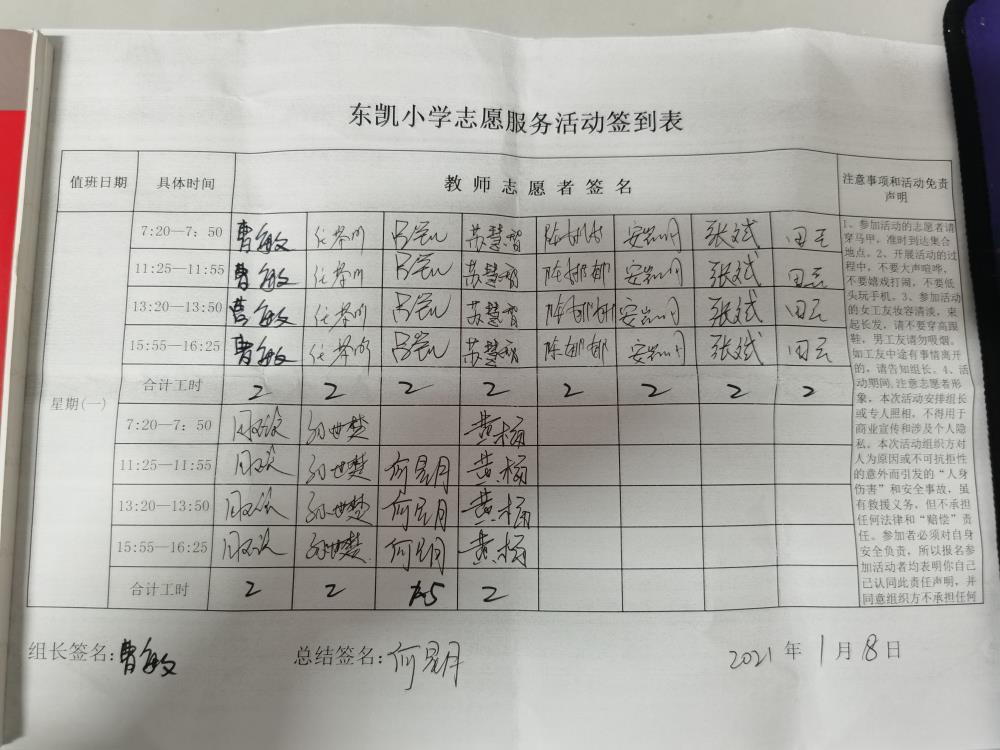 东凯小学志愿服务活动签到表
值班日期 具体时间 教师志愿者签名 注意事项和活动免责声明
星期(一)
7:20—7：50 曹敏 苏慧智 张斌 田云
11:25—11:55 曹敏 苏慧智 张斌 田云
13:20—13:50 曹敏 苏慧智 张斌 田云
15:55—16:25 曹敏 苏慧智 张斌 田云
合计工时 2 2 2 2 2 2 2 2
7:20—7：50 孙世楚 黄杨
11:25—11:55 孙世楚 何昱月 黄杨
13:20—13:50 孙世楚 何昱月 黄杨
15:55—16:25 孙世楚 何昱月 黄杨
合计工时 2 2 1.5 2
1、参加活动的志愿者请
穿马甲，准时到达集合
地点。2、开展活动的过
程中，不要大声喧哗，
不要嬉戏打闹，不要低
头玩手机。3、参加活动
的女工友妆容清淡，束
起长发，请不要穿高跟
鞋，男工友请勿吸烟。
如工友中途有事情离开
的，请告知组长。4、活
动期间，注意志愿者形
象，本次活动安排组长
或专人照相，不得用于
商业宣传和涉及个人隐
私。本次活动组织方对
人为原因或不可抗拒性
的意外而引发的“人身
伤害”和安全事故，虽
有救援义务，但不承担
任何法律和“赔偿”责
任。参加者必须对自身
安全负责，所以报名参
加活动者均表明你自己
已认同此责任声明，并
同意组织方不承担任何
组长签名:曹敏 总结签名:何昱月 2021 年 1 月 8 日